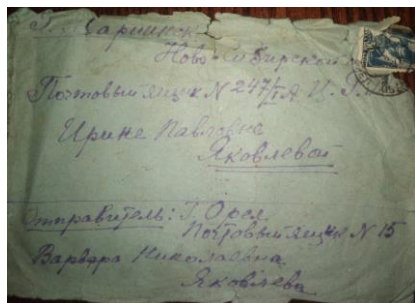 г. Мариинск
Ново-Сибирской
Почтовый ящик N 247/I А Ц.
Ирине Павловне
Яковлевой
Отправитель: г. Орел
Почтовый ящик N 15
Варвара Николаевна
Яковлева